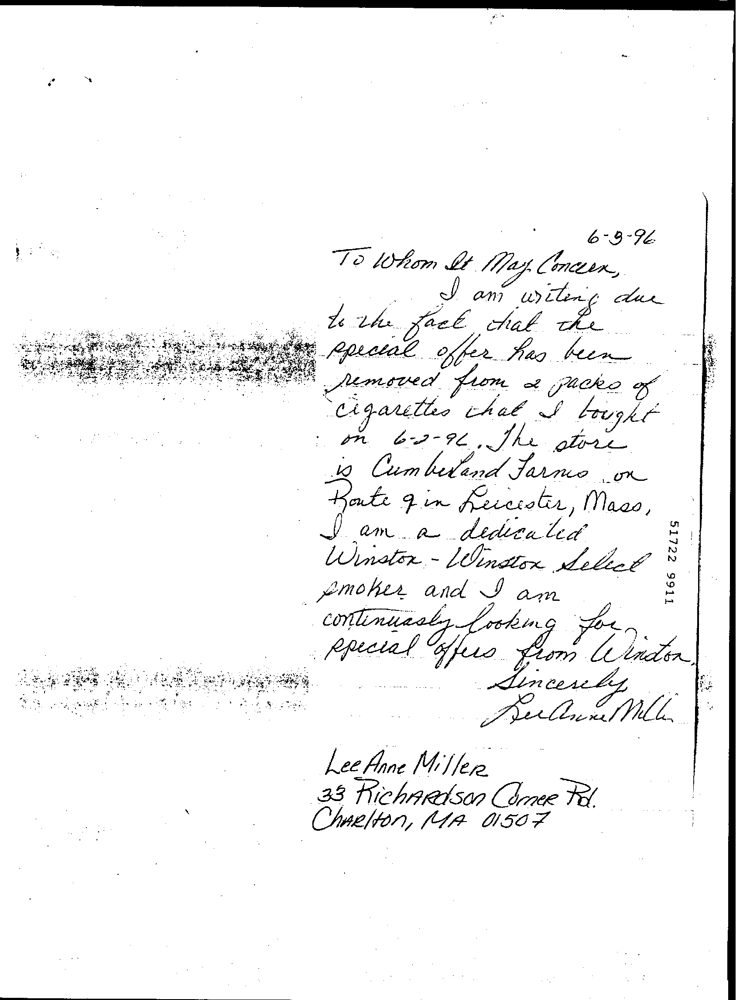 6-3-96
To Whom It May Concern,
I am writing due
to the fact that the
special offer has been
removed from 2 packs of
cigarettes that I bought
on 6-2-96. The store
is Cumberland Farms on
Route 9 in Leicester, Mass,
I am a dedicated
Winston - Winston Select
smoker and I am
continuasly looking for
special offers from Winston.
Sincerely
LeeAnne Miller
LeeAnne Miller
33 Richardson Corner Rd.
Charlton, MA 01507
51722 9911